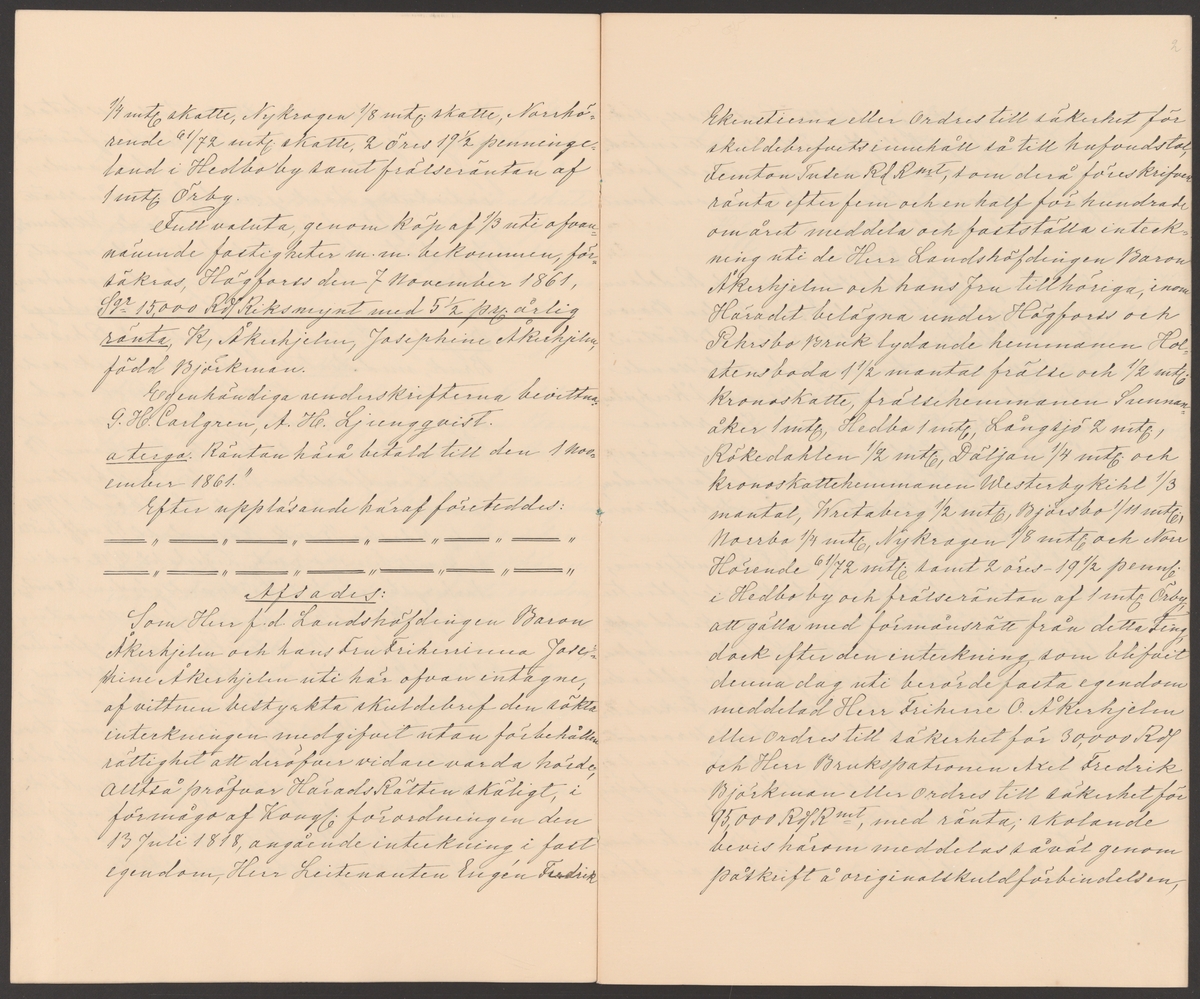 1/4 mtl skatte, Nykrogen 1/8 mtl skatte, Norrhö-
rende 61/72 mtl skatte, 2 öres 19 1/2 penninge-
land i Hedbo by samt frälseräntan af
1 mtl Örby.
Full valuta, genom köp af 1/3 uti ofvan-
nämnde fastigheter m. m. bekommen, för-
säkras, Högforss den 7 November 1861,
Sgr 15,000 Rdl Riksmynt med 5 1/2 prc årlig
ränta, K, Åkerhjelm, Josephine Åkerhjelm,
född Björkman.
Egenhändiga underskrifterna bevittna:
G. H. Carlgren, A. H. Ljungqvist.
a tergo. Räntan härå betald till den 1 Nov-
ember 1861."
Efter uppläsande häraf företeddes:
Afsades:
Som Herr f. d. Landshöfdingen Baron
Åkerhjelm och hans Fru Friherrinna Jose-
phine Åkerhjelm uti här ofvan intagne,
af vittnen bestyrkta skuldebref den sökta
inteckningen medgifvit utan förbehållen
rättighet att deröfver vidare varda hörde,
Alltså pröfvar HäradsRätten skäligt, i
förmågo af Kongl. förordningen den
13 Juli 1818, angående inteckning i fast
egendom, Herr Leitenanten Eugén Fredrik
2
Ekenstierna eller Ordres till säkerhet för
skuldebrefvets innehåll så till hufvudstol,
Femton Tusen Rdl Rmt, som derå föreskrifven
ränta efter fem och en half för hundrade
om året meddela och fastställa inteck-
ning uti de Herr Landshöfdingen Baron
Åkerhjelm och hans fru tillhöriga, inom
Häradet belägna under Högforss och
Pehrsbo Bruk lydande hemmanen Hol-
stensboda 1 1/2 mantal frälse och 1/2 mtl
kronoskatte, frälsehemmanen Sunnan-
åker 1 mtl, Hedbo 1 mtl, Långsjö 2 mtl,
Rökedahlen 1/2 mtl, Däljan 1/4 mtl och
kronoskattehemmanen Westerbykihl 1/3
mantal, Wretaberg 1/2 mtl, Björsbo 1/4 mtl,
Norrbo 1/4 mtl, Nykrogen 1/8 mtl och Norr
Hörende 61/72 mtl samt 2 öres - 19 1/2 pennl
i Hedbo by och frälseräntan af 1 mtl Örby,
att gälla med förmånsrätt från detta Ting
dock efter den inteckning som blifvit
denna dag uti berörde fasta egendom
meddelad Herr Friherre O. Åkerhjelm
eller Ordres till säkerhet för 30,000 Rdl
och Herr Brukspatronen Axel Fredrik
Björkman eller Ordres till säkerhet för
95,000 Rdl Rmt, med ränta; skolande
bevis härom meddelas såväl genom
påskrift å originalskuldförbindelsen,